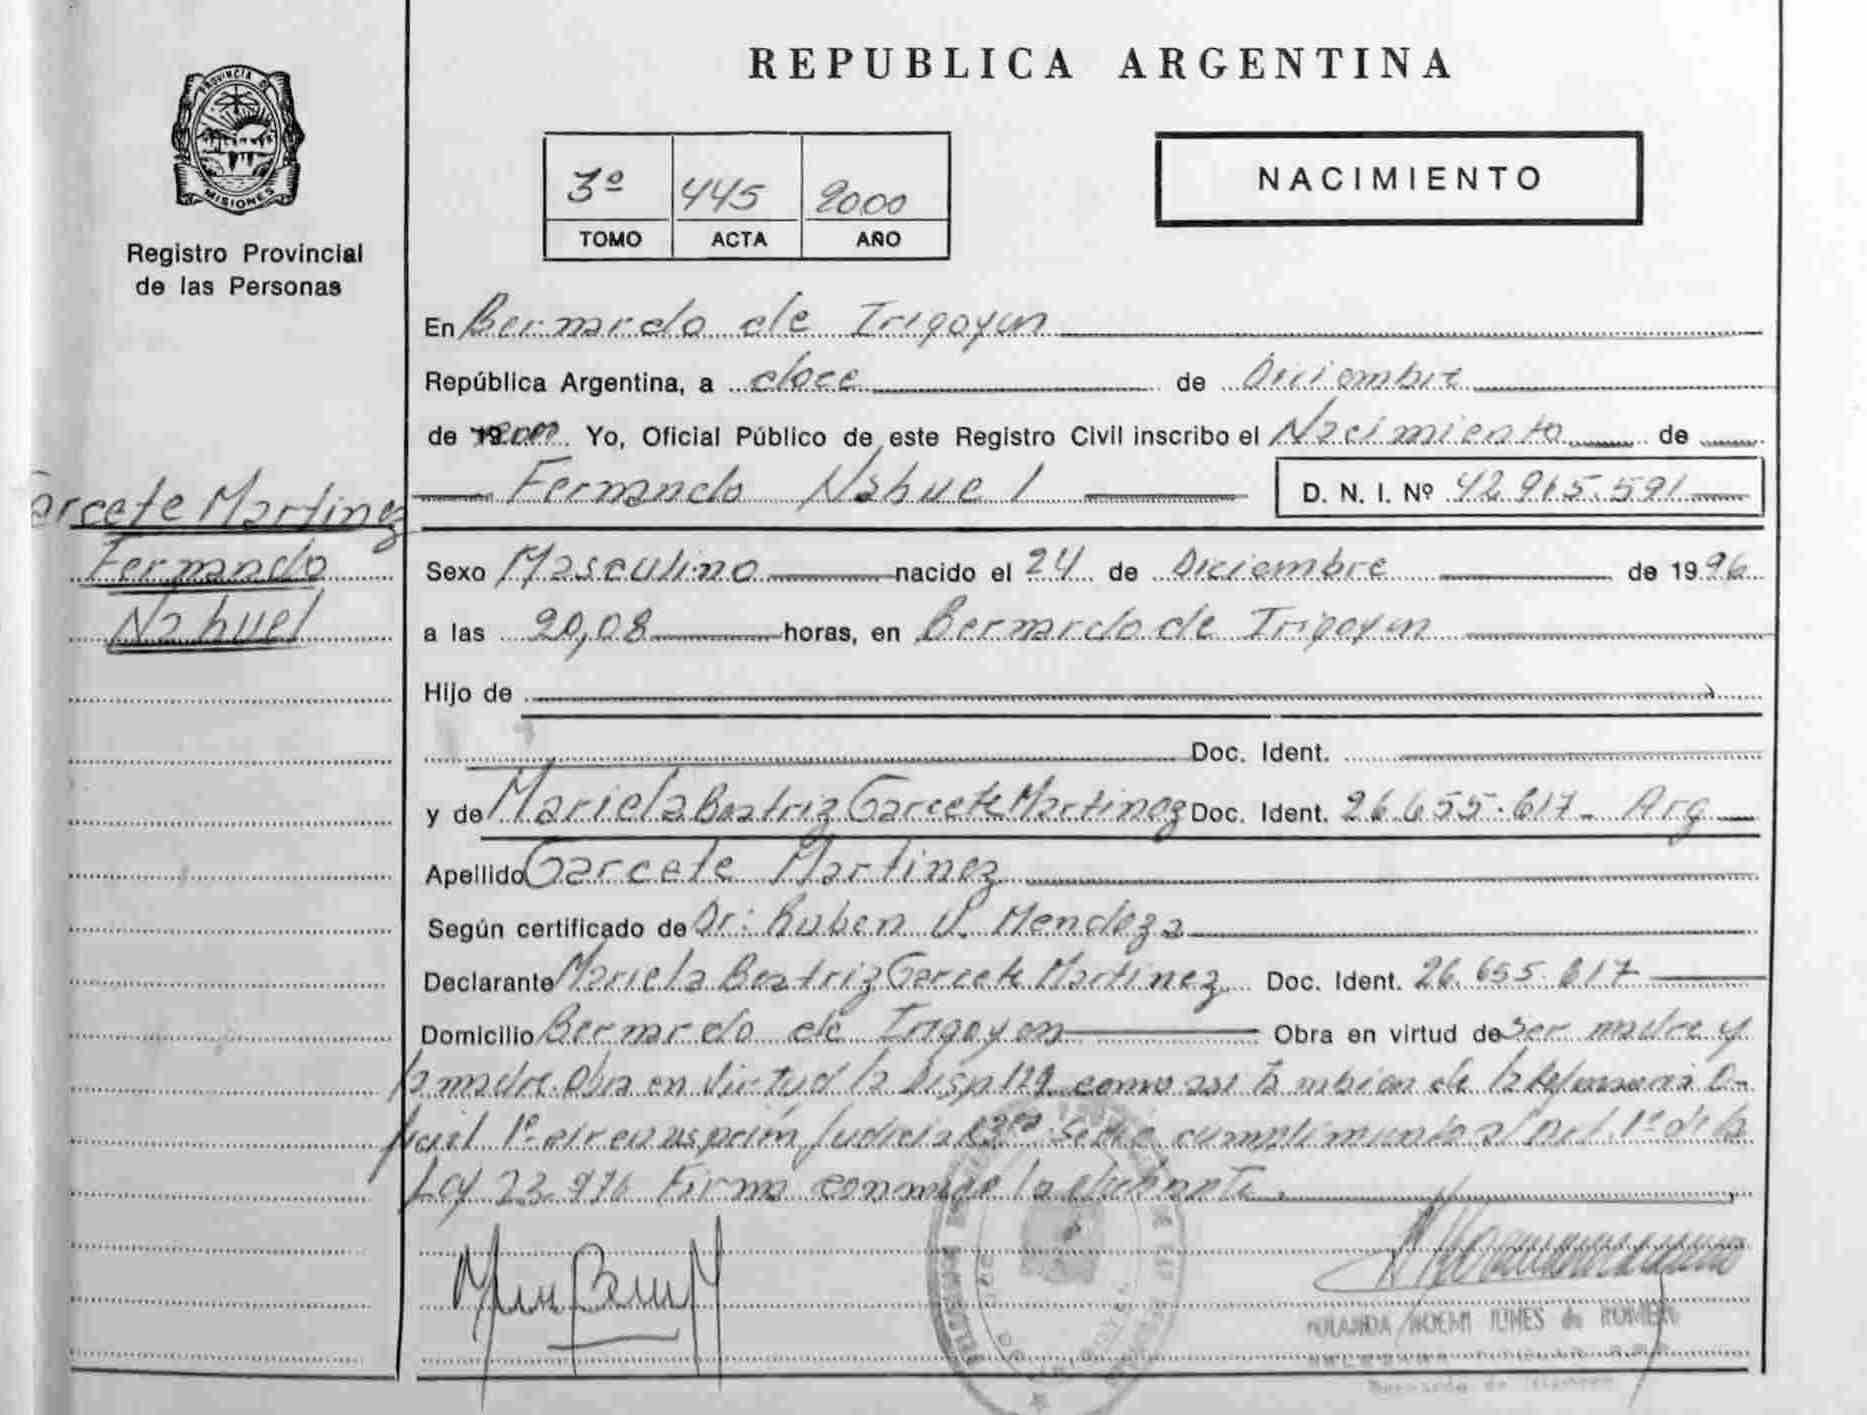 REPUBLICA ARGENTINA
PROVINCIA DE
MISIONES
Registro Provincial
de las Personas
3º 445 2000
TOMO ACTA AÑO
NACIMIENTO
En Bernardo de Irigoyen
República Argentina, a doce de Diciembre
de 19 Yo, Oficial Público de este Registro Civil inscribo el Nacimiento de
Fernando Nahuel D. N. I. Nº 42.965.591
Garcete Martinez
Fernando
Nahuel
Sexo Masculino nacido el 24 de Diciembre de 1996
a las 20,08 horas, en Bernardo de Irigoyen
Hijo de
Doc. Ident.
y de Mariela Beatriz Garcete Martinez Doc. Ident. 26.655.617 - Arg
Apellido Garcete Martinez
Según certificado de Dr: Ruben V. Mendoza
Declarante Mariela Beatriz Garcete Martinez Doc. Ident. 26.655.617
Domicilio Bernardo de Irigoyen Obra en virtud de ser madre y
la madre. Obra en virtud la Disp 129 como asi tambien de la defensoria O-
ficial 1º circunscripción Judicial cumplimiento al Art. 1º de la
Ley 23.976 Firma conmigo la